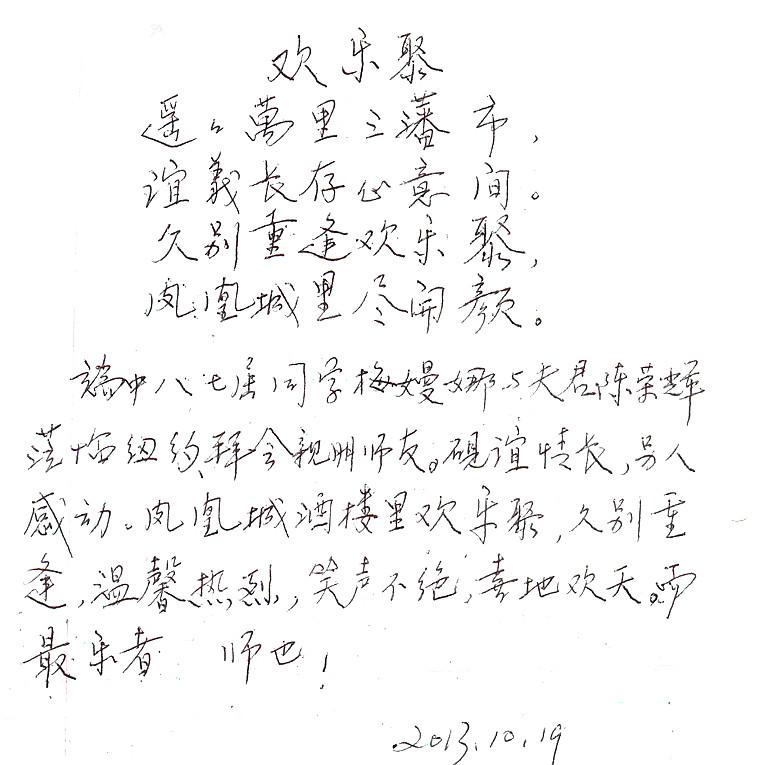 欢乐聚
遥々萬里三藩市，
谊義长存心意间。
久别重逢欢乐聚，
凤凰城里尽开颜。
端中八七届同学梅嫚娜与夫君陈荣辉
莅临纽约拜会亲朋师友。砚谊情长，另人
感动。凤凰城酒楼里欢乐聚，久别重
逢，温馨热烈，笑声不绝，喜地欢天。而
最乐者 师也！
2013.10.19